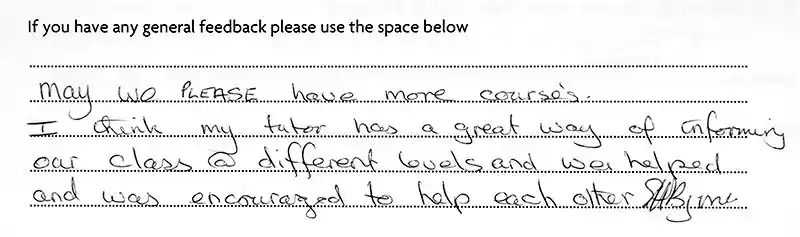 If you have any general feedback please use the space below
May we PLEASE have more course's.
I think my tutor has a great way of informing
our class @ different levels and we helped
and was encouraged to help each other